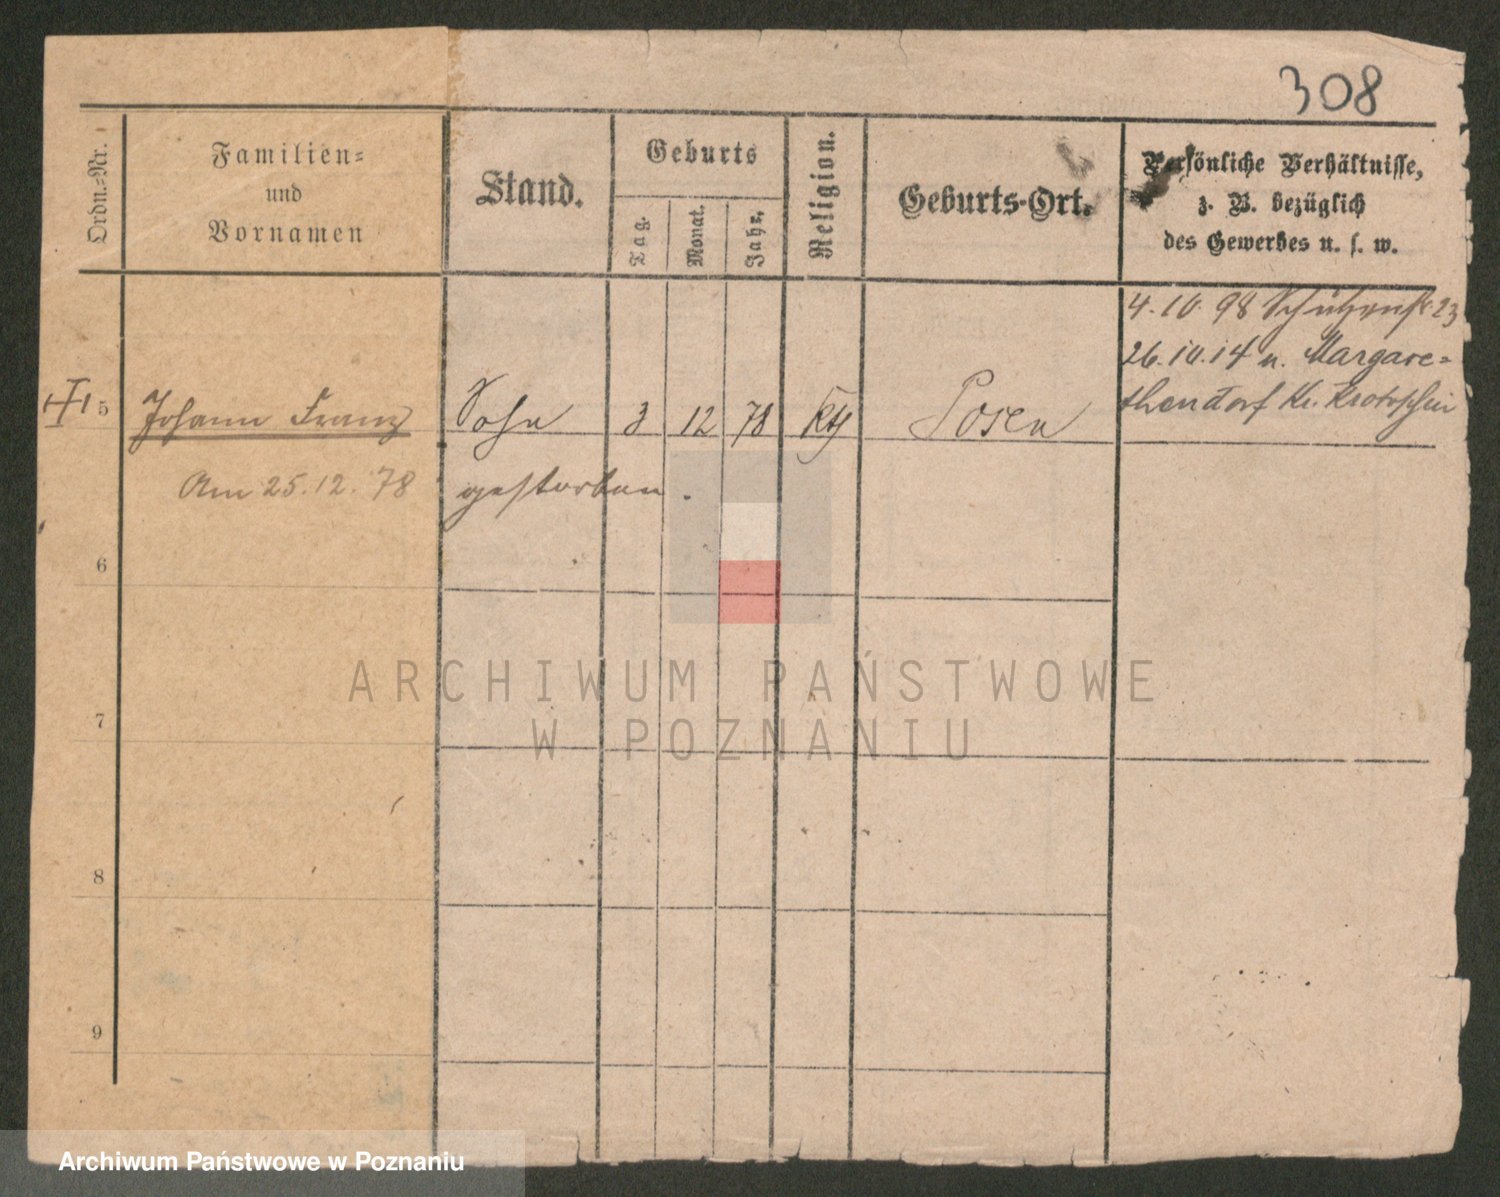 308
Ordn.-Nr.
Familien-
und
Vornamen
Stand.
Geburts
Tag.
Monat.
Jahr.
Religion.
Geburts-Ort.
Persönliche Verhältnisse,
z. B. bezüglich
des Gewerbes u. s. w.
4.10.98 Schützenstr 23
26.10.14 n. Margare-
thendorf Kr. Krotoschin
5 Johann Franz Sohn 3 12 78 Kth Posen
Am 25.12.78 gestorben.
6
7
8
9
ARCHIWUM PAŃSTWOWE
W POZNANIU
Archiwum Państwowe w Poznaniu